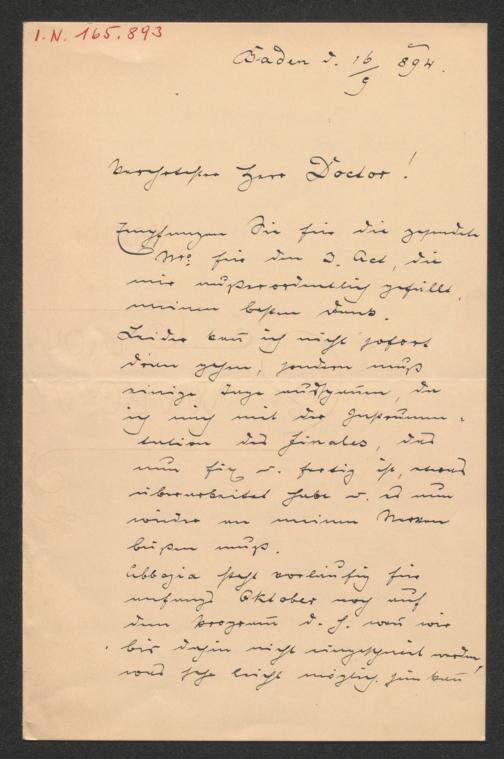 I.N. 165.893
Baden d. 16/9 894.
Verehrtester Herr Doctor!
Empfangen Sie für die gesendete
Nro. für den 3. Act, die
mir außerordentlich gefällt,
meinen besten Dank.
Leider kann ich nicht sofort
dran gehen, sondern muß
einige Tage ausspannen, da
ich mich mit der Instrumen-
tation des Finales, das
nun fix u. fertig ist, etwas
überarbeitet habe u. es nun
wieder an meinen Nerven
büßen muß.
Abbazia steht vorläufig für
anfangs Oktober noch auf
dem Programm d. h. wenn wir
bis dahin nicht eingeschneit werden,
was sehr leicht möglich sein kann